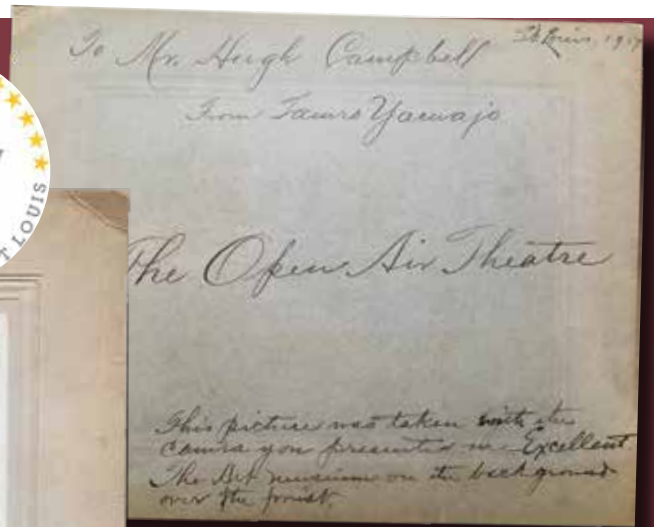 To Mr. Hugh Campbell
St. Louis, 1917
From
The Open Air Theatre
This picture was taken with the
camera you presented me Excellent.
The Art museum on the back ground
over the forest.
T LOUIS